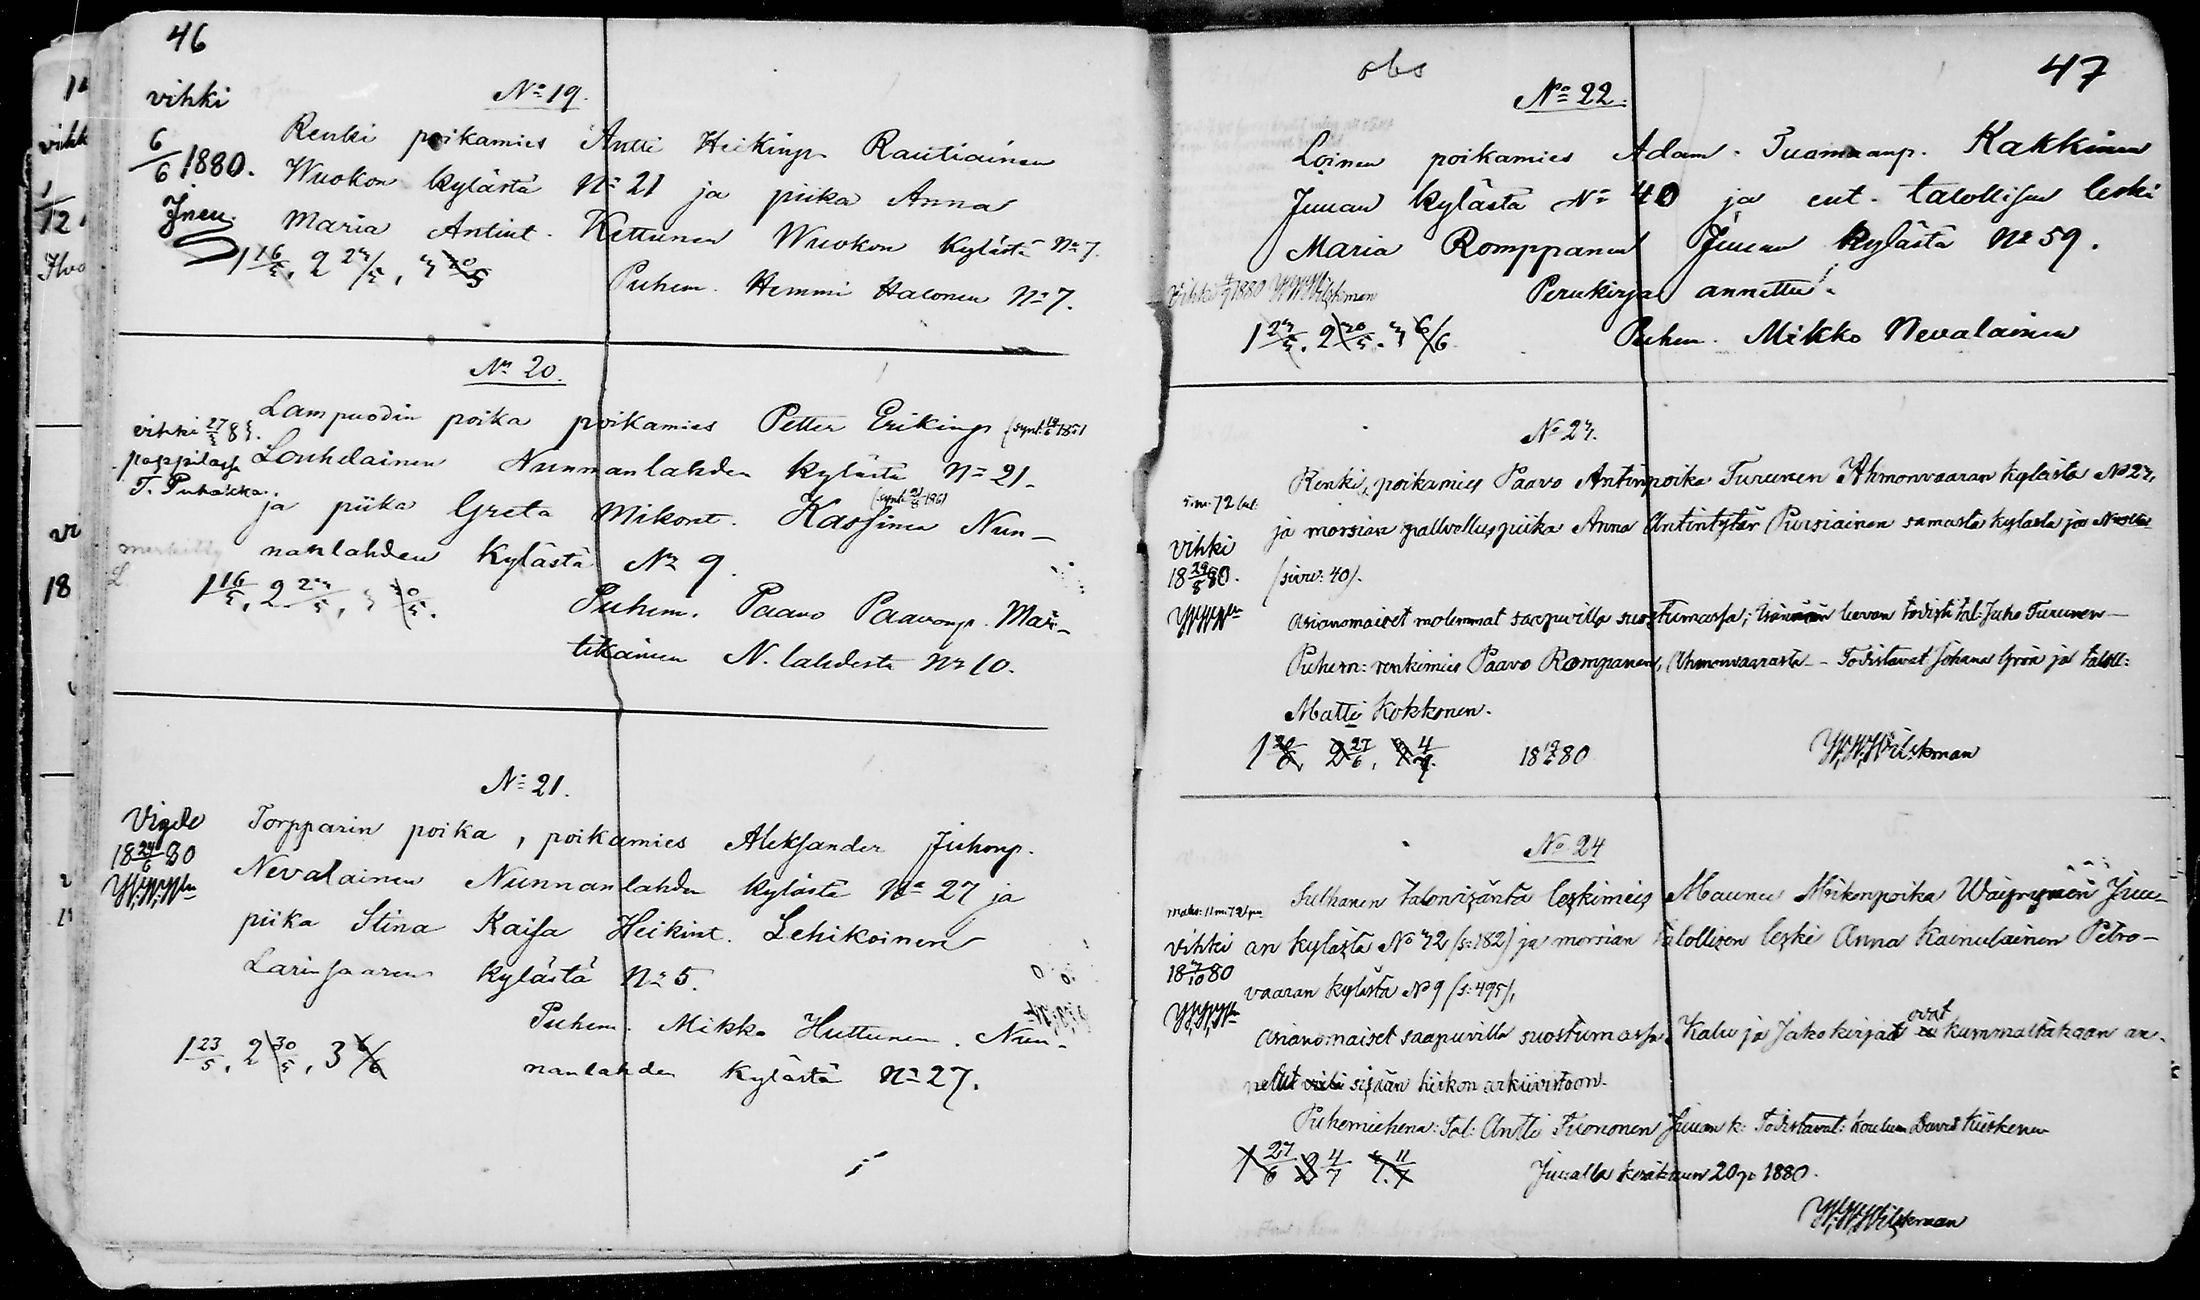 46
vihki
No 19.
6/6 1880.
Renki poikamies Antti Heikinp. Rautiainen
Wuokon kylästä No 21 ja piika Anna
Maria Antint. Kettunen Wuokon kylästä No 7.
1 16/5, 2 23/5, 3 30/5
Puhem. Hemmi Halonen No 7.
No 20.
vihki 27/3 83.
pappilassa
T. Puhakka.
Lampuodin poika poikamies Petter Erikinp.
Louhelainen Nunnanlahden kylästä No 21.
ja piika Greta Mikont. Kassinen Nun-
nanlahden kylästä No 9.
merkitty
L
1 16/5, 2 23/5, 3 30/5.
Puhem. Paavo Paavonp. Mar-
tikainen N. lahdesta No 10.
No 21.
Vigde
18 24/6 80
Torpparin poika, poikamies Aleksander Juhonp.
Nevalainen Nunnanlahden kylästä No 27 ja
piika Stina Kaisa Heikint. Lehikoinen
Larinsaaren kylästä No 5.
Puhem. Mikko Huttunen. Nun-
nanlahden kylästä No 27.
1 23/5, 2 30/5, 3 6/6
obs
47
No 22.
Loinen poikamies Adam Tuomaanp. Kakkinen
Juuan kylästä No 40 ja ent. talollisen leski
Maria Romppanen Juuan kylästä No 59.
Vihki 4/7 1880 W.W. Wilskman
Perukirja annettu.
1 23/5. 2 30/5. 3 6/6
Puhem. Mikko Nevalainen
No 23.
Renki, poikamies Paavo Antinpoika Turunen Ahmonvaaran kylästä No 23,
ja morsian palvelluspiika Anna Antintytär Pursiainen samasta kylästä ja
vihki
18 29/8 80.
(sivu: 40).
Asianomaiset molemmat saapuvilla suostumassa; isännän luvan todisti tal: Juho Turunen
Puhem: renkimies Paavo Rompanen, Ahmonvaarasta - Todistavat Johana Grön ja taloll:
Matti Kokkonen.
1 20/6, 2 27/6, 3 4/7.
18 19/6 80
W.W. Wilskman
No 24
Sulhanen talonisäntä leskimies Maunu Mikonpoika Wäyrynen Juu-
vihki
18 3/10 80
an kylästä No 32 (s: 182) ja morsian talollisen leski Anna Kainulainen Petro-
vaaran kylästä No 9 (s: 495),
Asianomaiset saapuvilla suostumassa. Kalu ja Jakokirjat ovat kummaltakaan an-
netut sisään kirkon arkiivistoon.
Puhemiehenä: Tal: Antti Tuononen Juuan k: Todistavat: David Kiiskinen
1 27/6 2 4/7 3 11/7
Juualla kesäkuun 20 p. 1880.
W.W. Wilskman